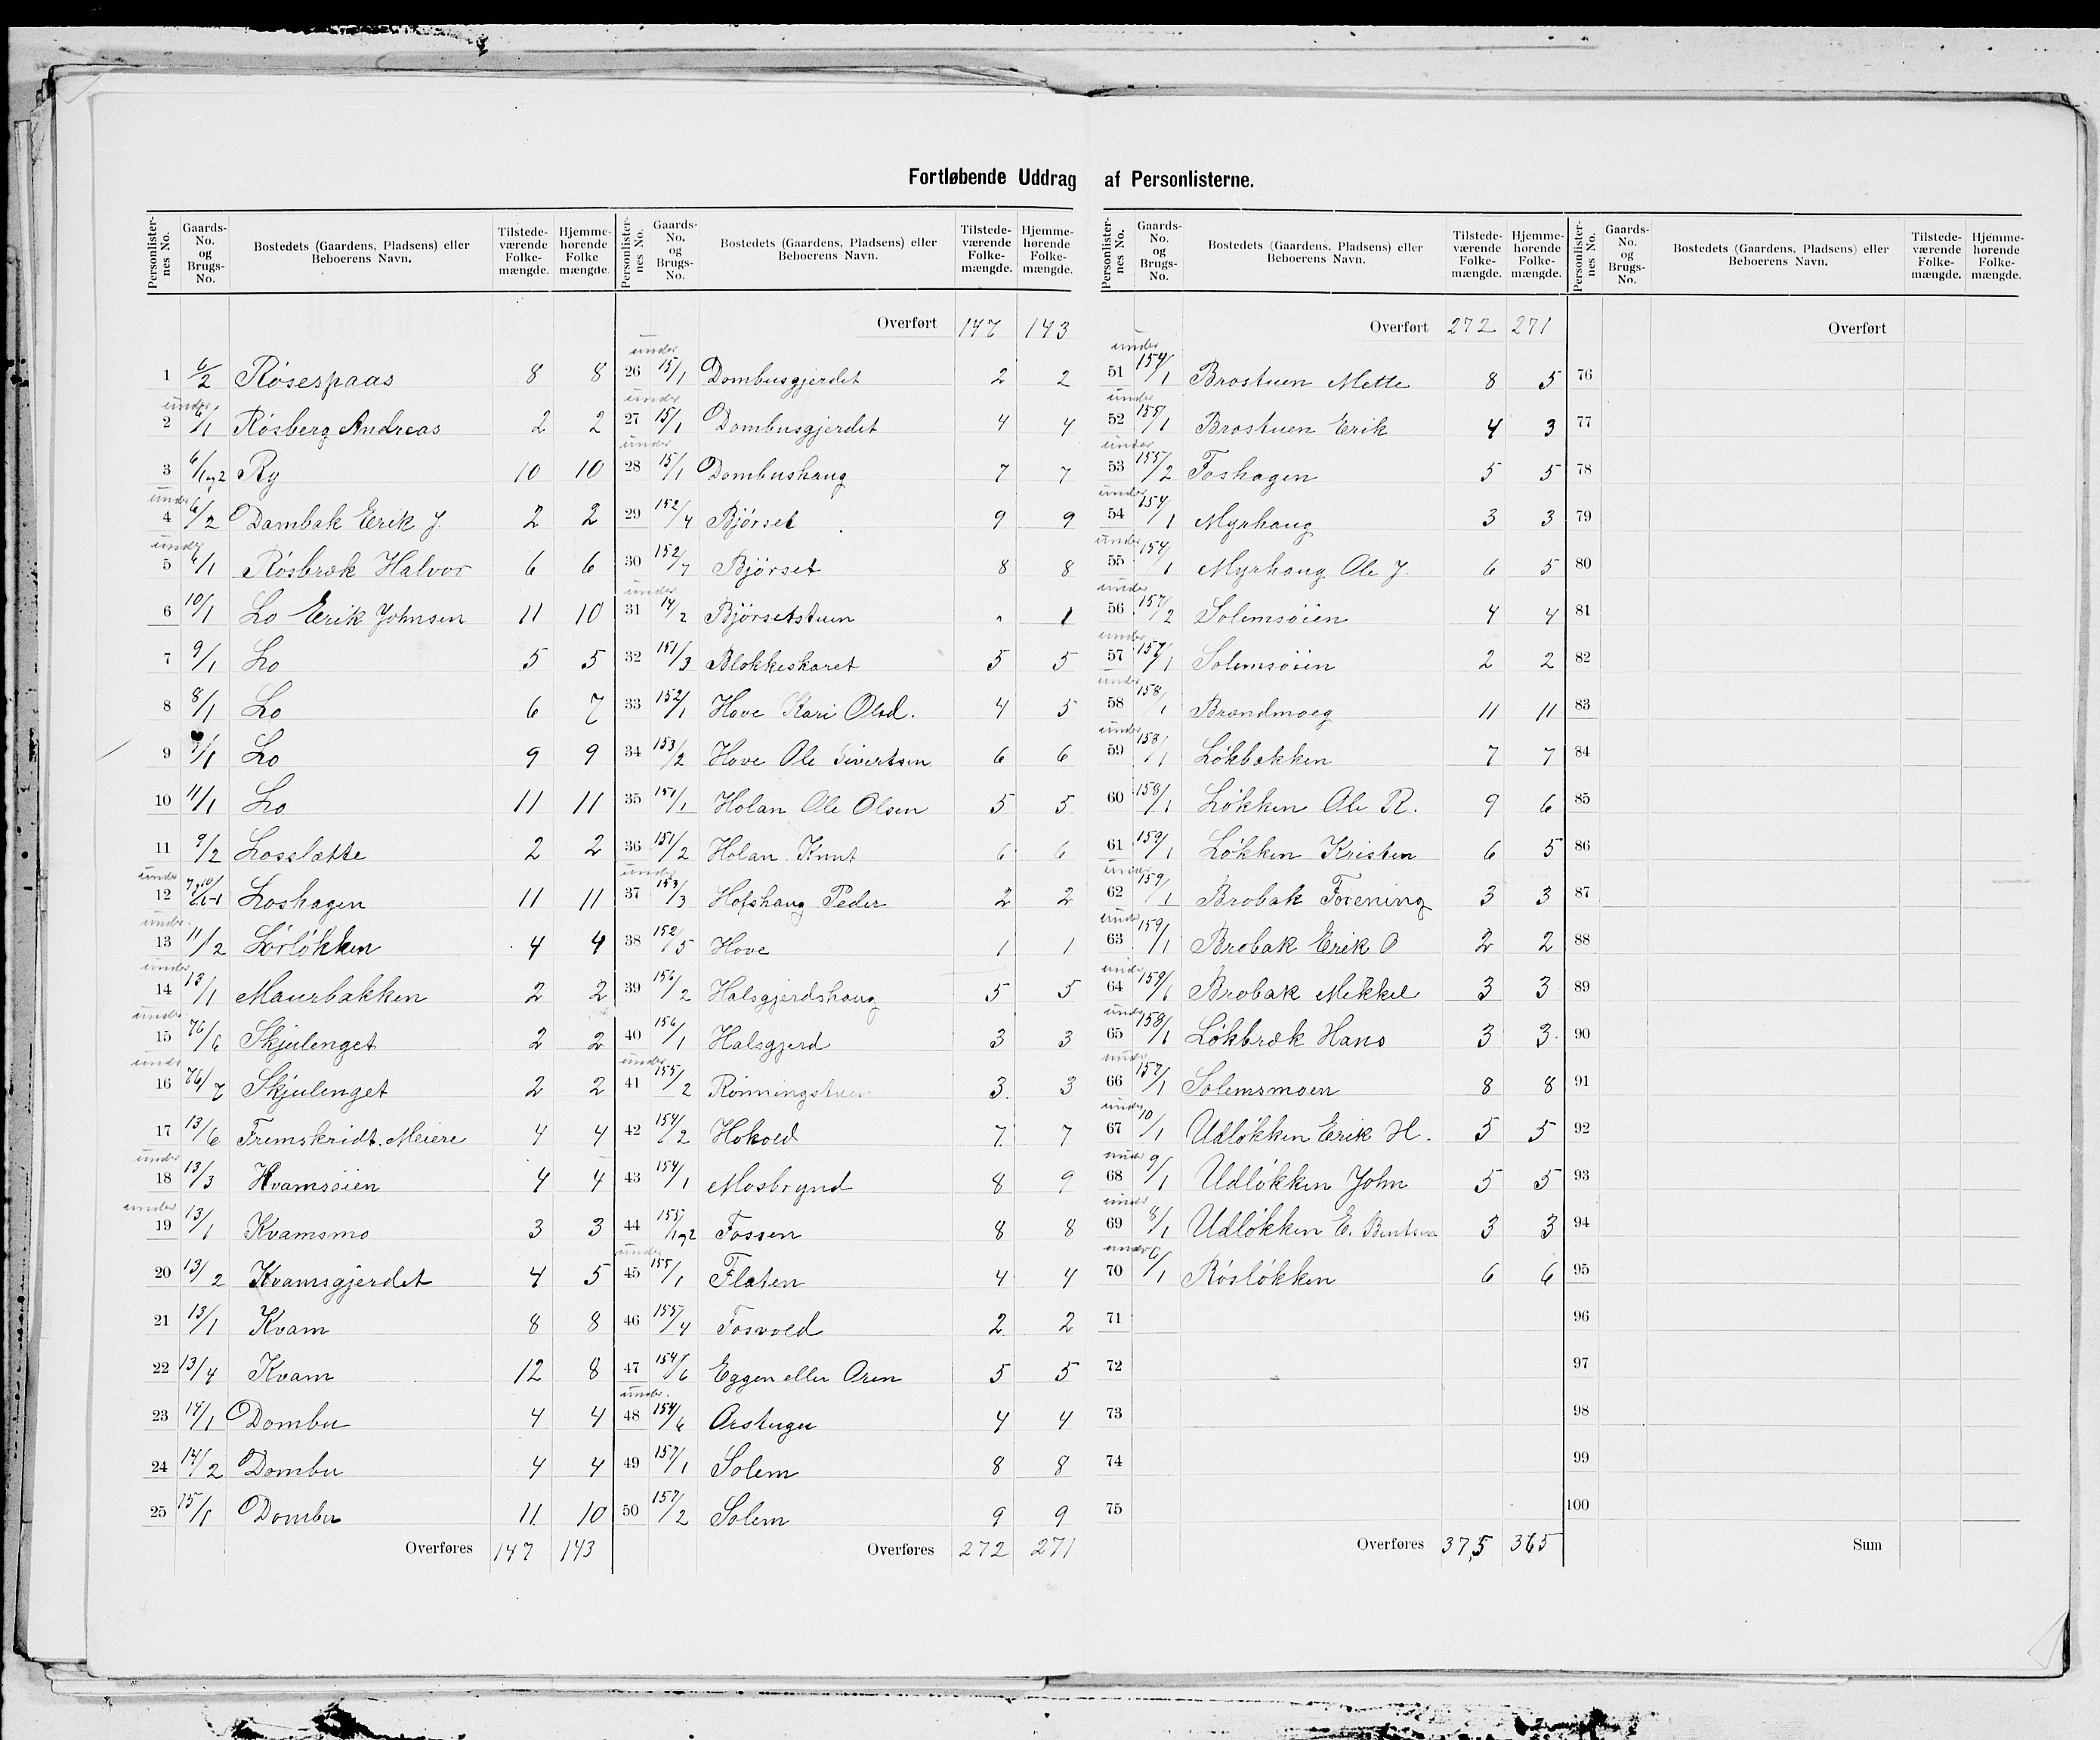 Fortløbende Uddrag af Personlisterne.
Personlister-nes No. Gaards-No. og Brugs-No. Bostedets (Gaardens, Pladsens) eller Beboerens Navn. Tilstede-værende Folke-mængde. Hjemme-hørende Folke mængde.
1 6/2 Røsespaas 8 8
under
2 6/1 Røsberg Andreas 2 2
3 6/1og2 Ry 10 10
under
4 6/2 Dambak Erik J. 2 2
under
5 6/1 Røsbræk Halvor 6 6
6 10/1 Lo Erik Johnsen 11 10
7 9/1 Lo 5 5
8 8/1 Lo 6 7
9 7/1 Lo 9 9
10 11/1 Lo 11 11
11 9/2 Losslætte 2 2
under
12 Loshagen 11 11
under
13 11/2 Lørløkken 4 4
under
14 13/1 Maurbakken 2 2
under
15 76/6 Skjulenget 2 2
under
16 76/7 Skjulenget 2 2
17 13/6 Fremskridt. Meiere 4 4
under
18 13/3 Kvamsøien 4 4
under
19 13/1 Kvamsmo 3 3
20 13/2 Kvamsgjerdet 4 5
21 13/1 Kvam 8 8
22 13/4 Kvam 12 8
23 14/1 Dombu 4 4
24 14/2 Dombu 4 4
25 15/1 Dombu 11 10
Overføres 147 143
Personlister-nes No. Gaards-No. og Brugs-No. Bostedets (Gaardens, Pladsens) eller Beboerens Navn. Tilstede-værende Folke-mængde. Hjemme-hørende Folke-mængde.
Overført 147 143
under
26 15/1 Dombusgjerdet 2 2
under
27 15/1 Dombusgjerdet 4 4
under
28 15/1 Dombushaug 7 7
29 152/4 Bjørset 9 9
30 152/7 Bjørset 8 8
under
31 14/2 Bjørsetstuen " 1
32 151/3 Blokkeskaret 5 5
33 152/1 Hove Kari Olsd. 4 5
34 153/2 Hove Ole Sivertsen 6 6
35 151/1 Holan Ole Olsen 5 5
36 151/2 Holan Knut 6 6
under
37 153/3 Hofshaug Peder 2 2
38 152/5 Hove 1 1
39 156/2 Halsgjerdshaug 5 5
40 156/1 Halsgjerd 3 3
under
41 155/2 Rønningstuen 3 3
42 154/2 Hokold 7 7
43 154/1 Mosbrynd 8 9
44 155/1og2 Fossen 8 8
under
45 155/1 Flaten 4 4
46 155/4 Fosvold 2 2
47 154/6 Eggen eller Oren 5 5
under
48 154/6 Orstugu 4 4
49 157/1 Solem 8 8
50 157/2 Solem 9 9
Overføres 272 271
Personlister-nes No. Gaards-No. og Brugs-No. Bostedets (Gaardens, Pladsens) eller Beboerens Navn. Tilstede-værende Folke-mængde. Hjemme-hørende Folke-mængde.
Overført 272 271
under
51 154/1 Brostuen Mette 8 5
under
52 155/1 Brostuen Erik 4 3
under
53 155/2 Foshagen 5 5
under
54 154/1 Myrhaug 3 3
under
55 154/1 Myrhaug Ole J. 6 5
under
56 157/2 Solemsøien 4 4
under
57 157/1 Solemsøien 2 2
under
58 158/1 Brændmoeg 11 11
under
59 158/1 Løkbakken 7 7
60 158/1 Løkken Ole R. 9 6
61 159/1 Løkken Kristen 6 5
under
62 159/1 Brobak Forening 3 3
under
63 159/1 Brobak Erik O 2 2
under
64 159/1 Brobak Mikkel 3 3
under
65 158/1 Løkbræk Hans 3 3
under
66 157/1 Solemsmoen 8 8
under
67 10/1 Udløkken Erik H. 5 5
under
68 9/1 Udløkken John 5 5
under
69 8/1 Udløkken E. Bentsen 3 3
under
70 6/1 Røsløkken 6 6
71
72
73
74
75
Overføres 375 365
Personlister-nes No. Gaards-No. og Brugs-No. Bostedets (Gaardens, Pladsens) eller Beboerens Navn. Tilstede-værende Folke-mængde. Hjemme-hørende Folke-mængde.
Overført
76
77
78
79
80
81
82
83
84
85
86
87
88
89
90
91
92
93
94
95
96
97
98
99
100
Sum